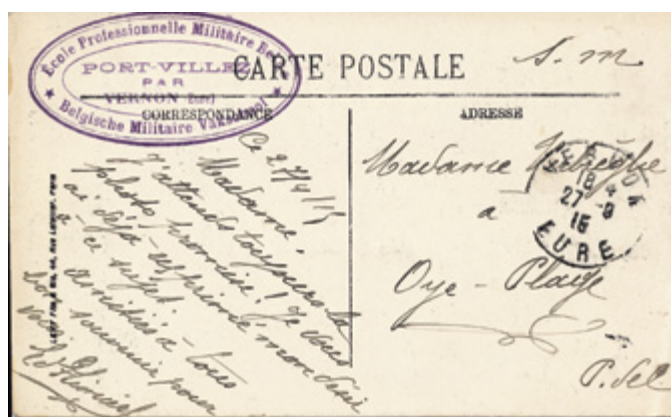 École Professionnelle Militaire Bel
PORT-VILLE
PAR
VERNON (Eure)
Belgische Militaire Vakschool
CARTE POSTALE
S. M
CORRESPONDANCE
ADRESSE
Ce 27/9/15
Madame,
J'attends toujours la
photo promise! Je vous
ai déjà exprimé mon désir
à ce sujet.
Amitiés à tous
souvenir pour
vous
Madame
a
Oye-Plage
P. de C
27-9
15
EURE